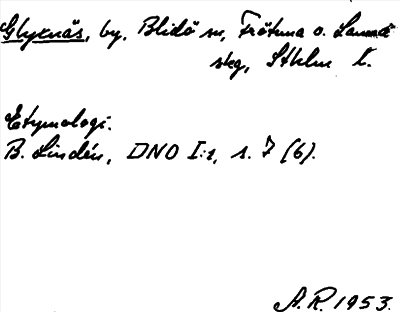 Glyxnäs, by, Blidö sn, Frötuna o. Länna
skg, Sthlm l.
Etymologi.
B. Lindén, DNO I:1, s. 7 (6).
A.R. 1953.